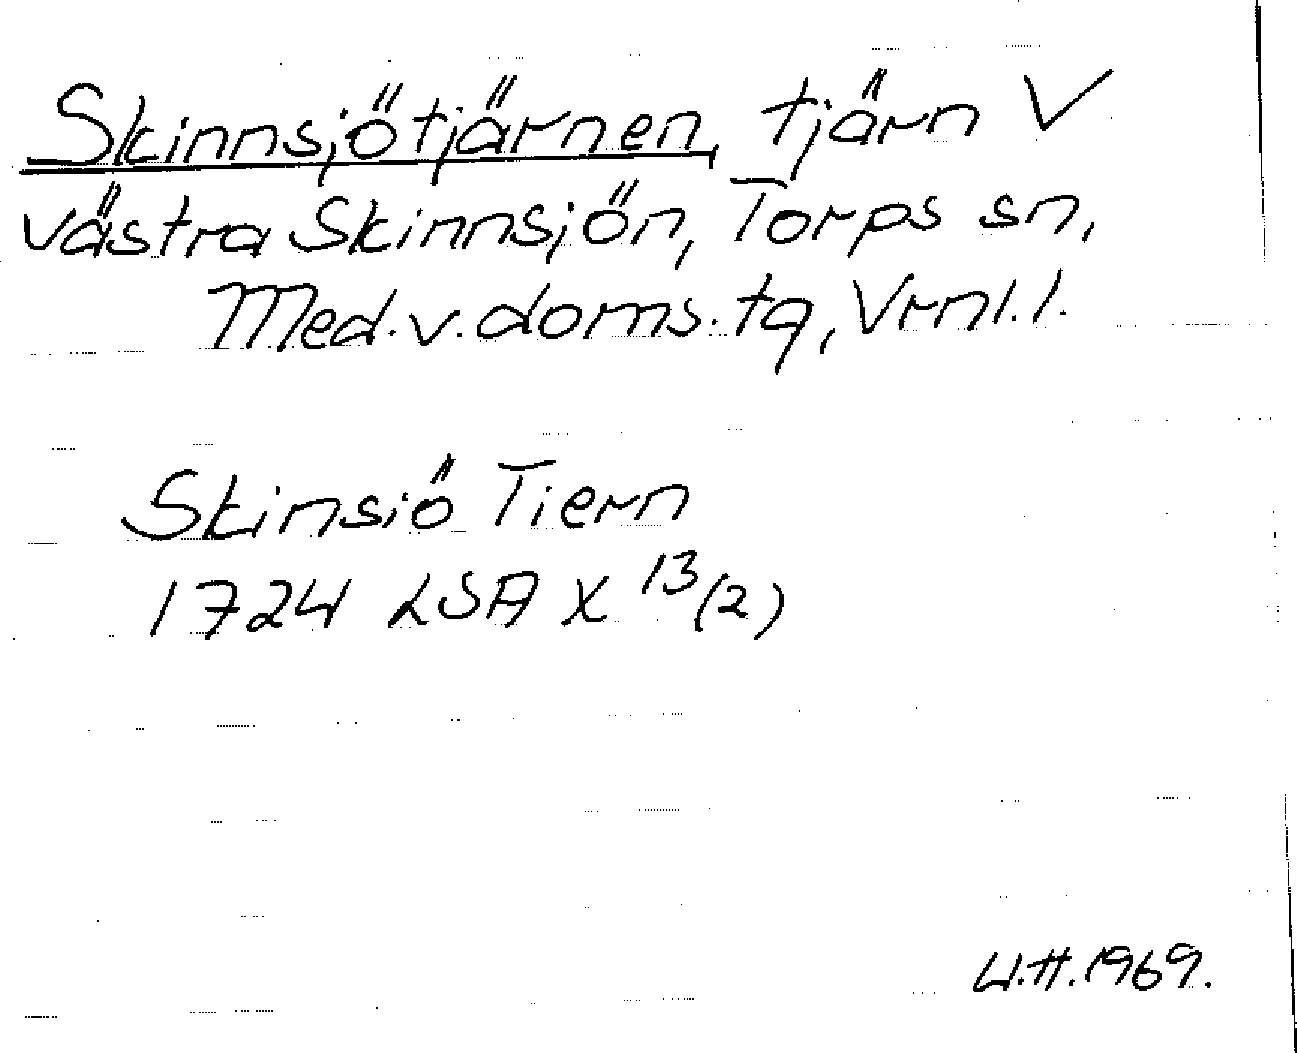 Skinnsjötjärnen, tjärn V
västra Skinnsjön, Torps sn,
Med.v.doms.tg, Vrnl.l.
Skinsiö Tiern
1724 LSA X 13/(2)
U.H.1969.